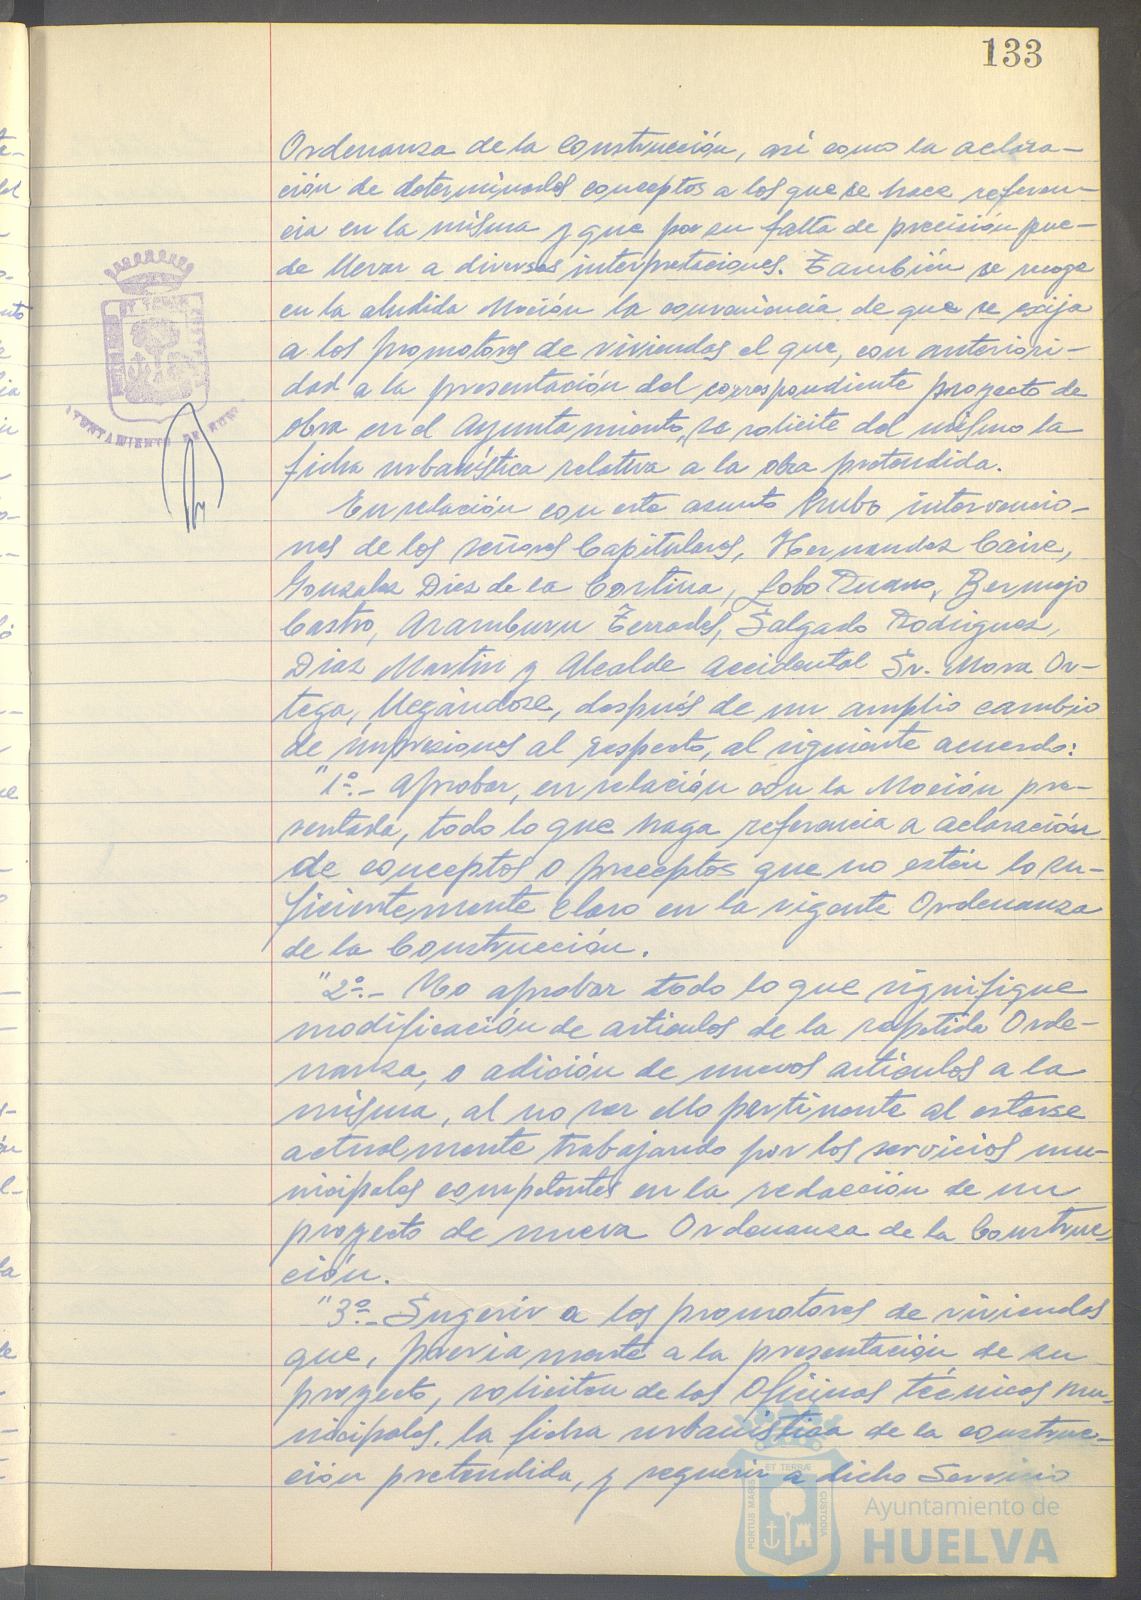 133
Ordenanza de la Construcción, así como la aclara-
ción de determinados conceptos a los que se hace referen-
cia en la misma y que por su falta de precisión pue-
de llevar a diversas interpretaciones. También se recoge
en la aludida Moción la conveniencia de que se exija
a los promotores de viviendas el que, con anteriori-
dad a la presentación del correspondiente proyecto de
obra en el Ayuntamiento, se solicite del mismo la
ficha urbanística relativa a la obra pretendida.
En relación con este asunto hubo intervencio-
nes de los señores Capitulares, Hernandez Caire,
Gonzalez Diez de la Cortina, Lobo Ruano, Bermejo
Castro, Aramburu Terrades, Salgado Rodriguez,
Diaz Martin y Alcalde Accidental Sr. Mora Or-
tega, llegándose, después de un amplio cambio
de impresiones al respecto, al siguiente acuerdo:
"1º.- Aprobar, en relación con la Moción pre-
sentada, todo lo que haga referencia a aclaración
de conceptos o preceptos que no estén lo su-
ficientemente claro en la vigente Ordenanza
de la Construcción.
"2º.- No aprobar todo lo que signifique
modificación de articulos de la repetida Orde-
nanza, o adición de nuevos articulos a la
misma, al no ser ello pertinente al estarse
actualmente trabajando por los servicios mu-
nicipales competentes en la redacción de un
proyecto de nueva Ordenanza de la Construc-
ción.
"3º.- Sugerir a los promotores de viviendas
que, previamente a la presentación de su
proyecto, soliciten de las Oficinas técnicas mu-
nicipales, la ficha urbanística de la construc-
ción pretendida, y requerir a dicho Servicio
AYUNTAMIENTO DE HUELVA
PORTUS MARIS ET TERRÆ CUSTODIA
Ayuntamiento de
HUELVA